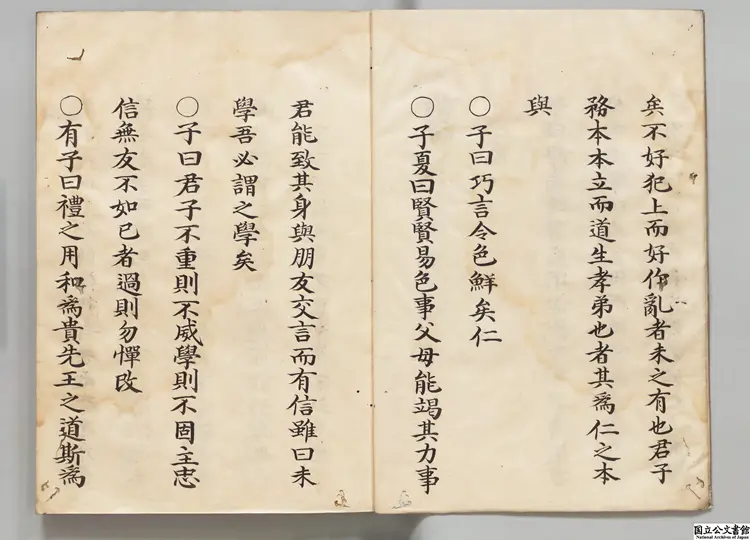 矣不好犯上而好作亂者未之有也君子
務本本立而道生孝弟也者其為仁之本
與
○子曰巧言令色鮮矣仁
○子夏曰賢賢易色事父母能竭其力事
君能致其身與朋友交言而有信雖曰未
學吾必謂之學矣
○子曰君子不重則不威學則不固主忠
信無友不如已者過則勿憚改
○有子曰禮之用和為貴先王之道斯為
国立公文書館
National Archives of Japan